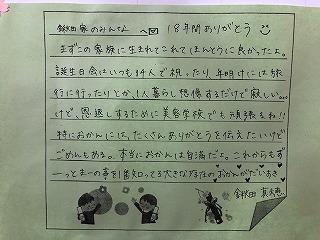 鍬田家のみんなへ 18年間ありがとう
まずこの家族に生まれてこれてほんとうに良かったよ。
誕生日会はいつも14人で祝ったり、年明けには旅
行に行ったりとか、1人暮らし想像するだけで寂しい。。。
けど、恩返しするために美容学校でも頑張るね!!
特におかんには、たくさんありがとうを伝えたいけど
ごめんもある。本当におかんは自満だよ。これからもず
ーっとまーの事を1番知ってる大きな存在のおかんがだいすき
鍬田 真